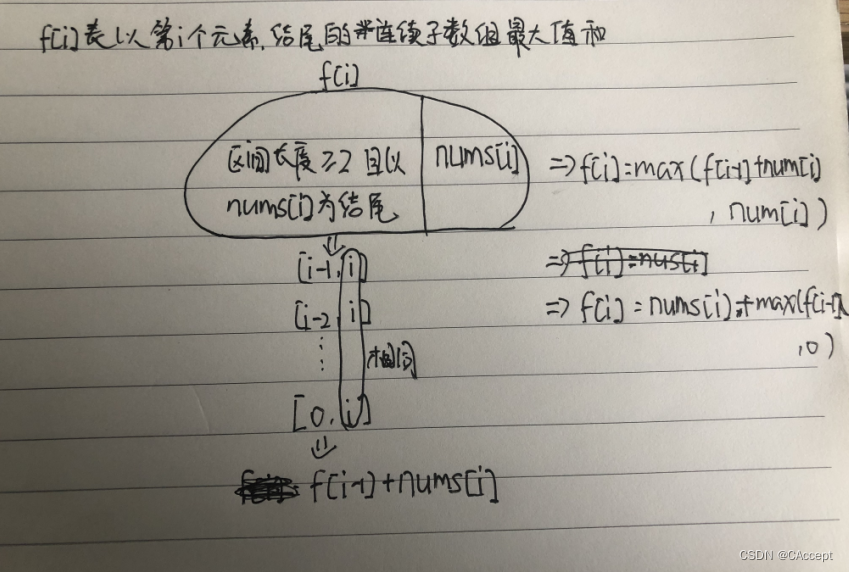 f[i]表以第i个元素结尾的连续子数组最大值和
f[i]
区间长度≥2 且以
nums[i]为结尾
nums[i]
=>f[i]=max(f[i-1]+num[i]
, num[i])
[i-1, i]
[i-2, i]
[0, i]
相同
f[i-1]+nums[i]
=> f[i]=nus[i]
=> f[i] = nums[i]+max(f[i-1]
,0)
CSDN @CAccept